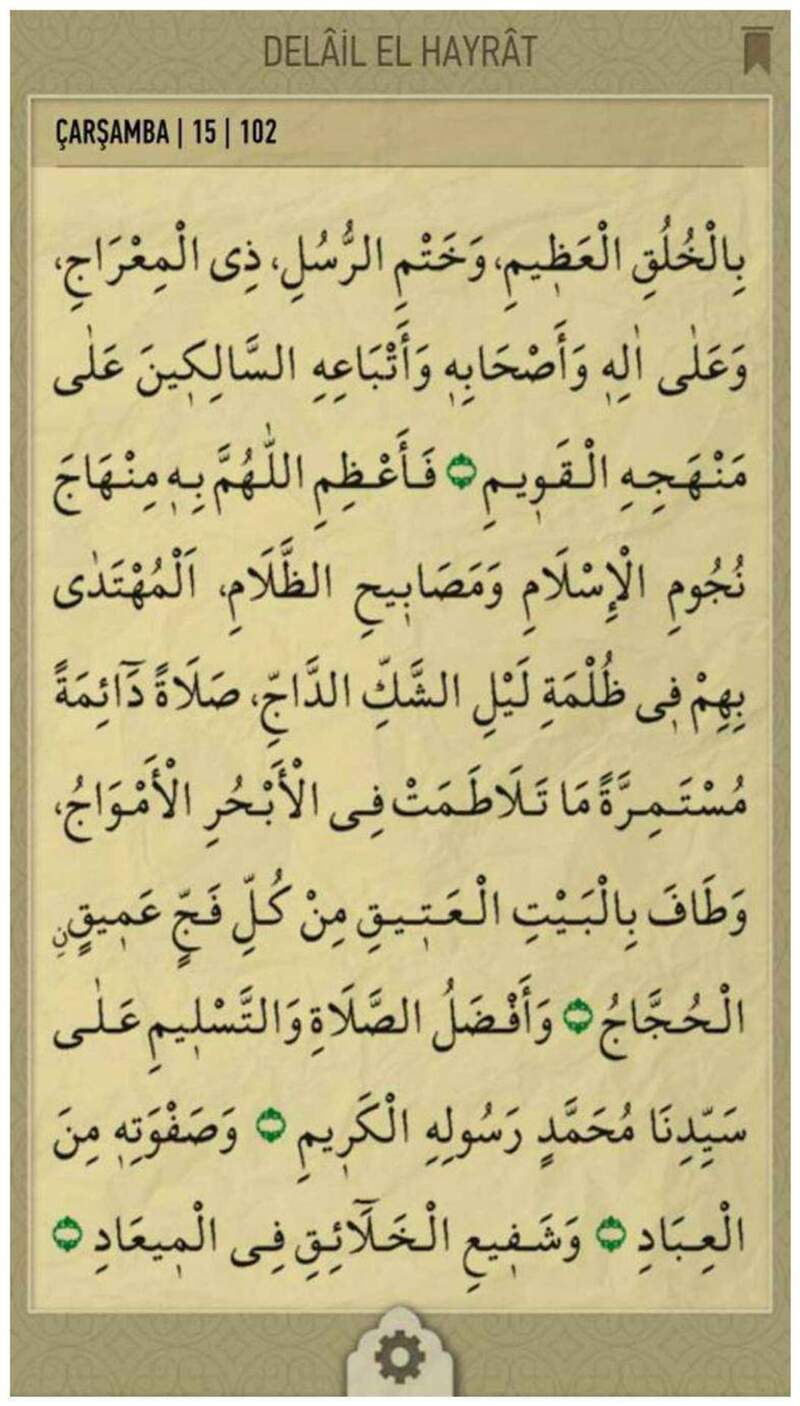 DELÂİL EL HAYRÂT
ÇARŞAMBA | 15 | 102
بِالْخُلُقِ الْعَظ۪يمِ، وَخَتْمِ الرُّسُلِ، ذِى الْمِعْرَاجِ،
وَعَلٰى اٰلِه۪ وَأَصْحَابِه۪ وَأَتْبَاعِهِ السَّالِك۪ينَ عَلٰى
مَنْهَجِهِ الْقَو۪يمِ ۝ فَأَعْظِمِ اللّٰهُمَّ بِه۪ مِنْهَاجَ
نُجُومِ الْإِسْلَامِ وَمَصَاب۪يحِ الظَّلَامِ، اَلْمُهْتَدٰى
بِهِمْ ف۪ى ظُلْمَةِ لَيْلِ الشَّكِّ الدَّاجِّ، صَلَاةً دَٓائِمَةً
مُسْتَمِرَّةً مَا تَلَاطَمَتْ فِى الْأَبْحُرِ الْأَمْوَاجُ،
وَطَافَ بِالْبَيْتِ الْعَت۪يقِ مِنْ كُلِّ فَجٍّ عَم۪يقٍنِ
الْحُجَّاجُ ۝ وَأَفْضَلُ الصَّلَاةِ وَالتَّسْل۪يمِ عَلٰى
سَيِّدِنَا مُحَمَّدٍ رَسُولِهِ الْكَر۪يمِ ۝ وَصَفْوَتِه۪ مِنَ
الْعِبَادِ ۝ وَشَف۪يعِ الْخَلَٓائِقِ فِى الْم۪يعَادِ ۝